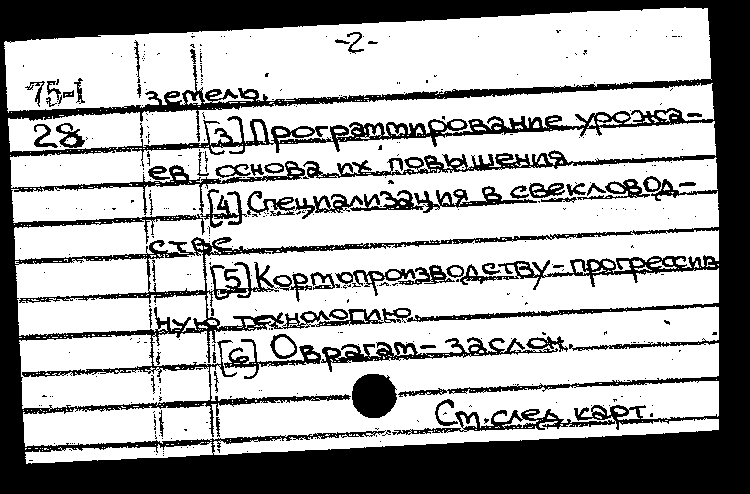 -2-
75-1 зетелю.
28 [3] Программирование урожа-
ев - основа их повышения
[4] Специализация в свекловод-
стве.
[5] Кормопроизводству - прогрессив
ную технологию.
[6] Оврагам - заслон.
См. след. карт.